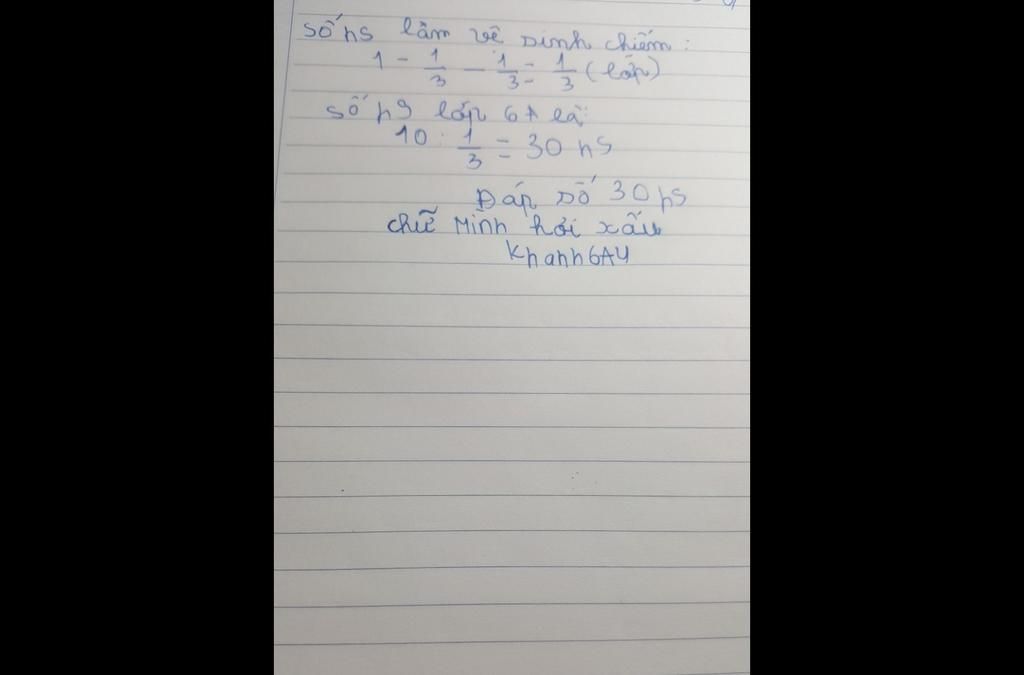 Số hs làm vệ sinh chiếm:
1 - 1/3 - 1/3 = 1/3 (lớp)
Số hs lớp 6A là:
10 : 1/3 = 30 hs
Đáp số 30 hs
chữ mình hơi xấu
Khanh6A4